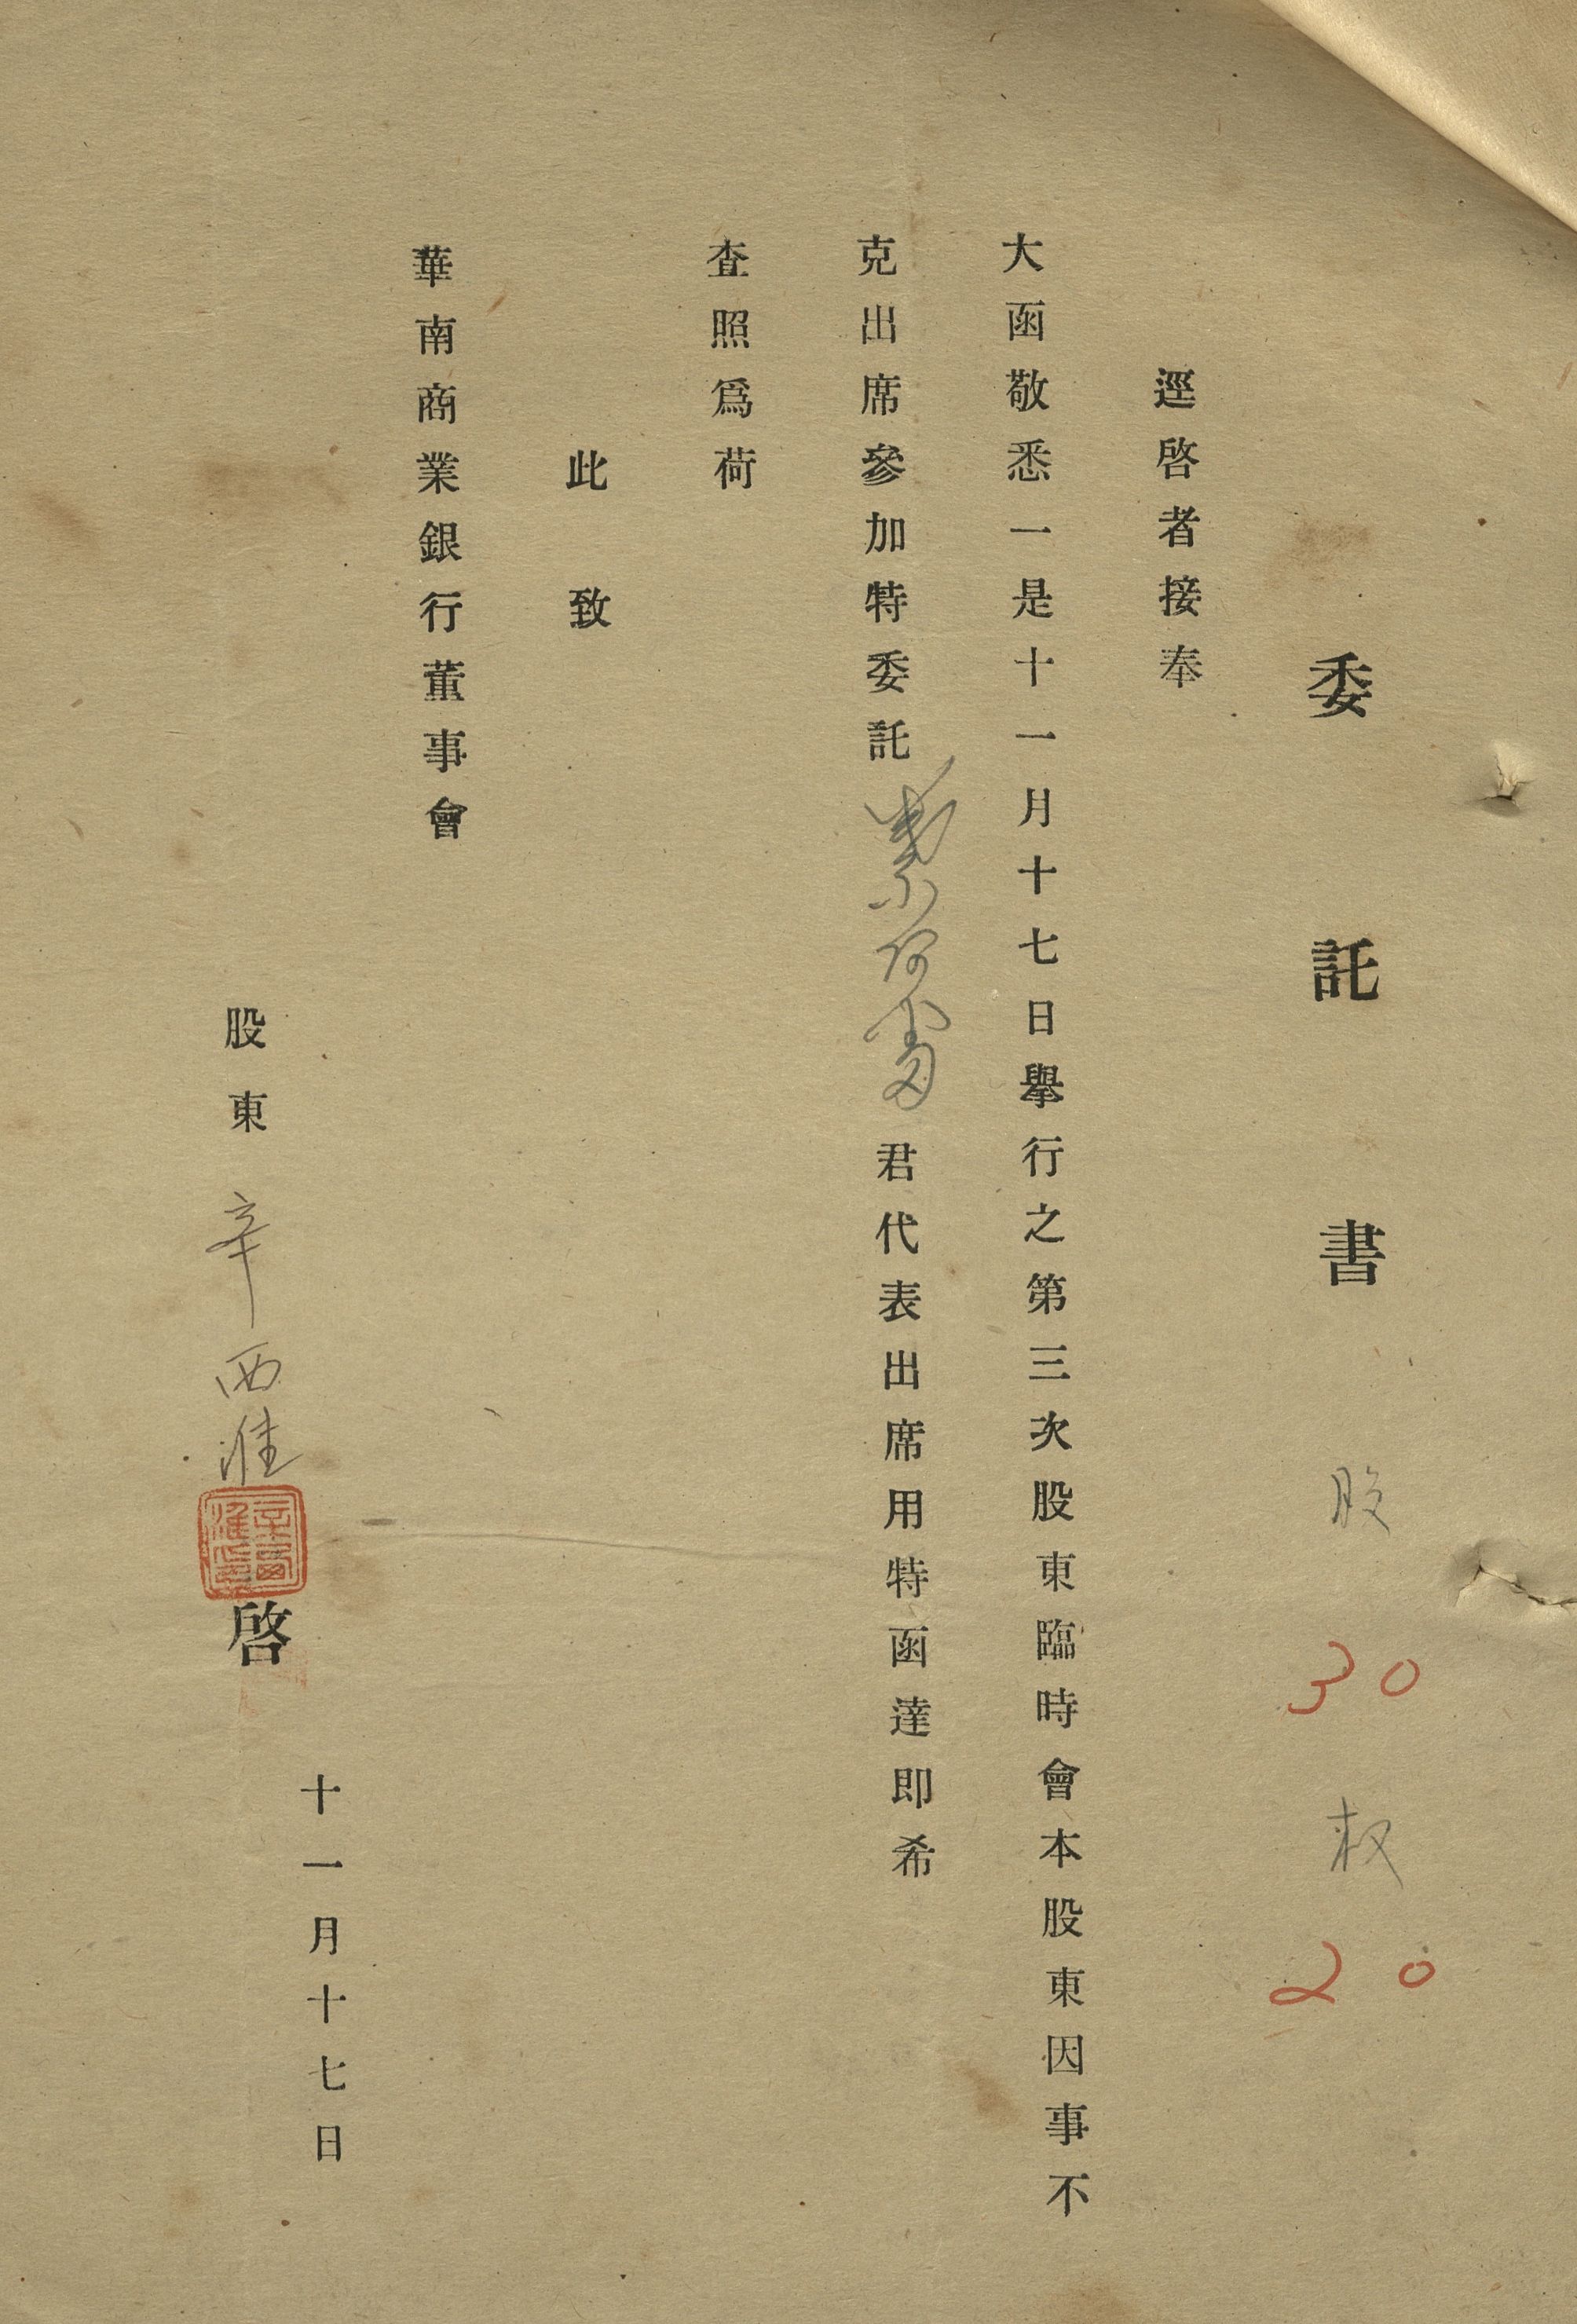 委託書 股 30 权 20
逕啓者接奉
大函敬悉一是十一月十七日舉行之第三次股東臨時會本股東因事不
克出席參加特委託 君代表出席用特函達即希
査照爲荷
此致
華南商業銀行董事會
股東 辛西淮 啓
十一月十七日